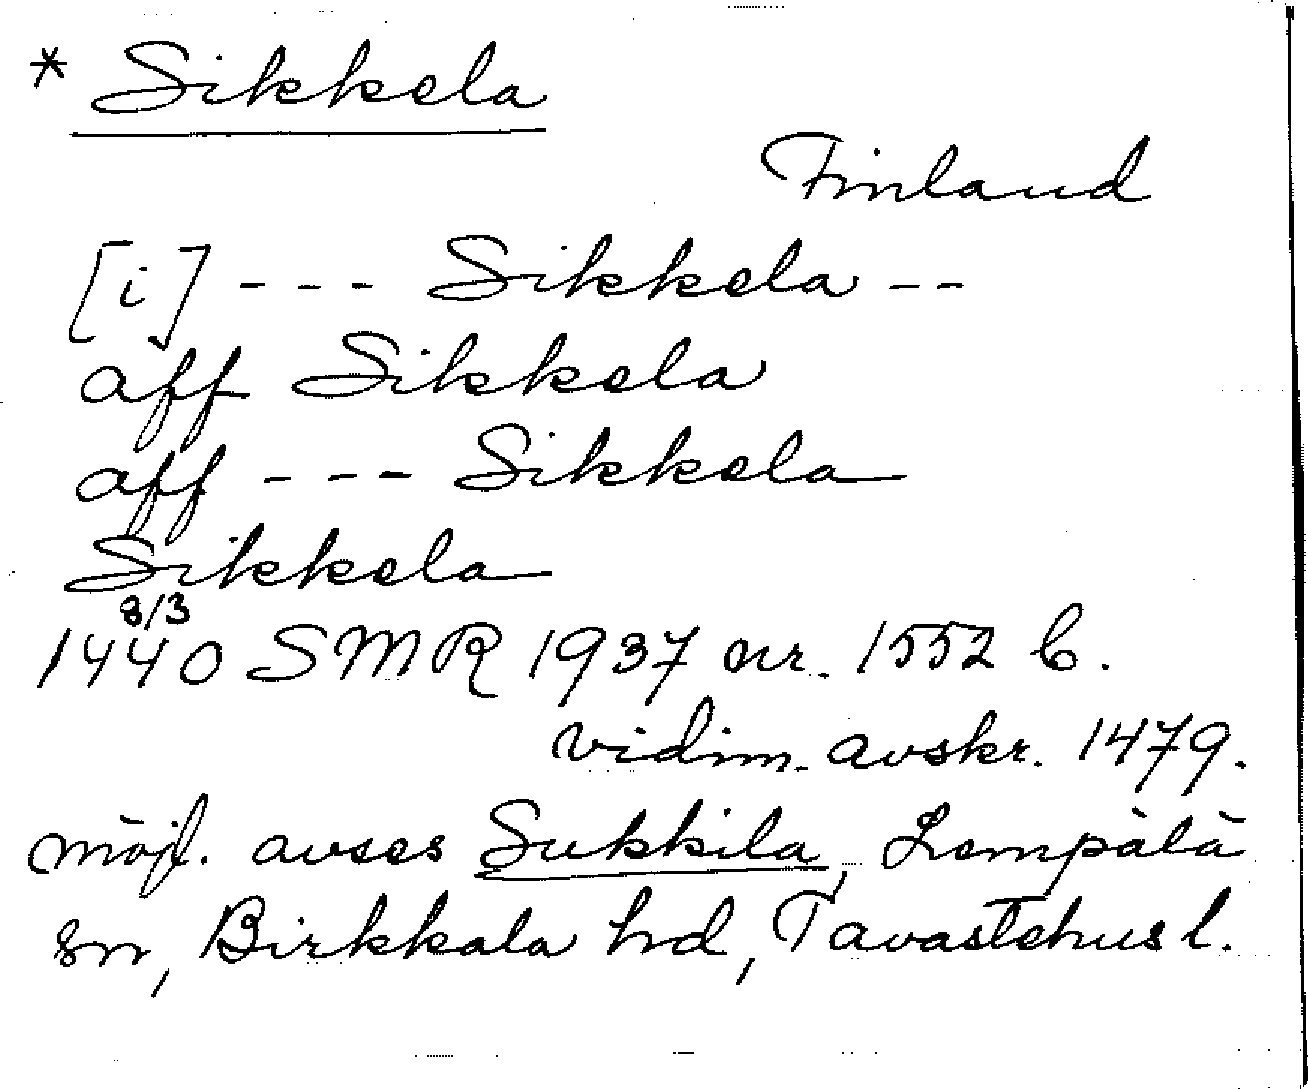 * Sikkela
Finland
[i] - - - Sikkela - -
aff Sikkela
aff - - - Sikkela
Sikkela
8/3
1440 SMR 1937 nr. 1552 b.
vidim. avskr. 1479.
möjl. avses Sukkila, Lempälä
sn, Birkkala hd, Tavastehus l.